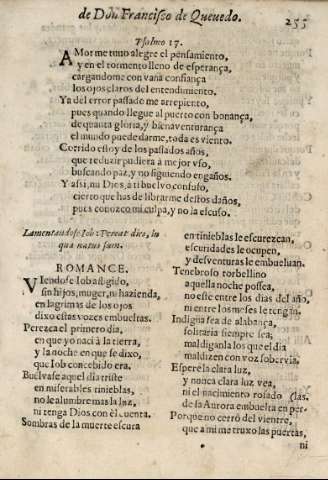 de Don Francisco de Quevedo.
255
Psalmo 17.
AMor me tuuo alegre el pensamiento,
y en el tormento lleno de esperança,
cargandome con vana confiança
los ojos claros del entendimiento.
Ya del error passado me arrepiento,
pues quando llegue al puerto con bonança,
de quanta gloria, y bienauenturança
el mundo puede darme, toda es viento.
Corrido estoy de los passados años,
que reduzir pudiera a mejor vso,
buscando paz, y no siguiendo engaños.
Y assi, mi Dios, a ti buelvo confuso,
cierto que has de librarme destos daños,
pues conozco mi culpa, y no la escuso.
Lamentandose Iob: Pereat dies, in
qua natus sum.
ROMANCE.
VIendose Iob afligido,
sin hijos, muger, ni hazienda,
en lagrimas de los ojos
dixo estas vozes embueltas.
Perezca el primero dia,
en que yo nací a la tierra,
y la noche en que se dixo,
que Iob concebido era.
Buelvase aquel dia triste
en miserables tinieblas,
no le alumbre mas la luz,
ni tenga Dios con èl cuenta.
Sombras de la muerte escura
en tinieblas le escurezcan,
escuridades le ocupen,
y desventuras le embueluan.
Tenebroso torbellino
aquella noche possea,
no estè entre los dias del año,
ni entre los meses le tengan.
Indigna sea de alabança,
solitaria siempre sea;
maldiganla los que el dia
maldizen con voz sobervia.
Espere la clara luz,
y nunca clara luz vea,
ni el nacimiento rosado (las.
de la Aurora embuelta en per-
Porque no cerrò del vientre,
que a mi me truxo las puertas,
ni